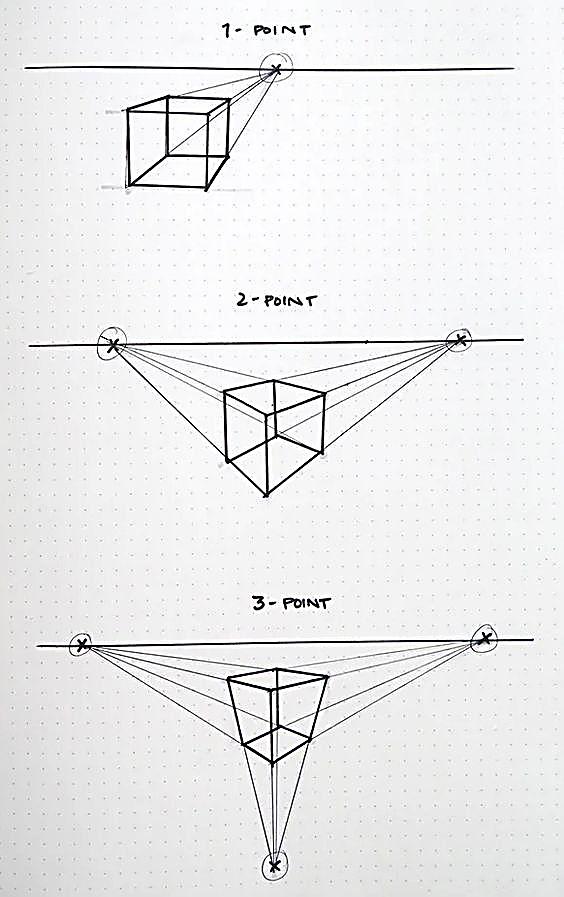 1- POINT
2-POINT
3- POINT